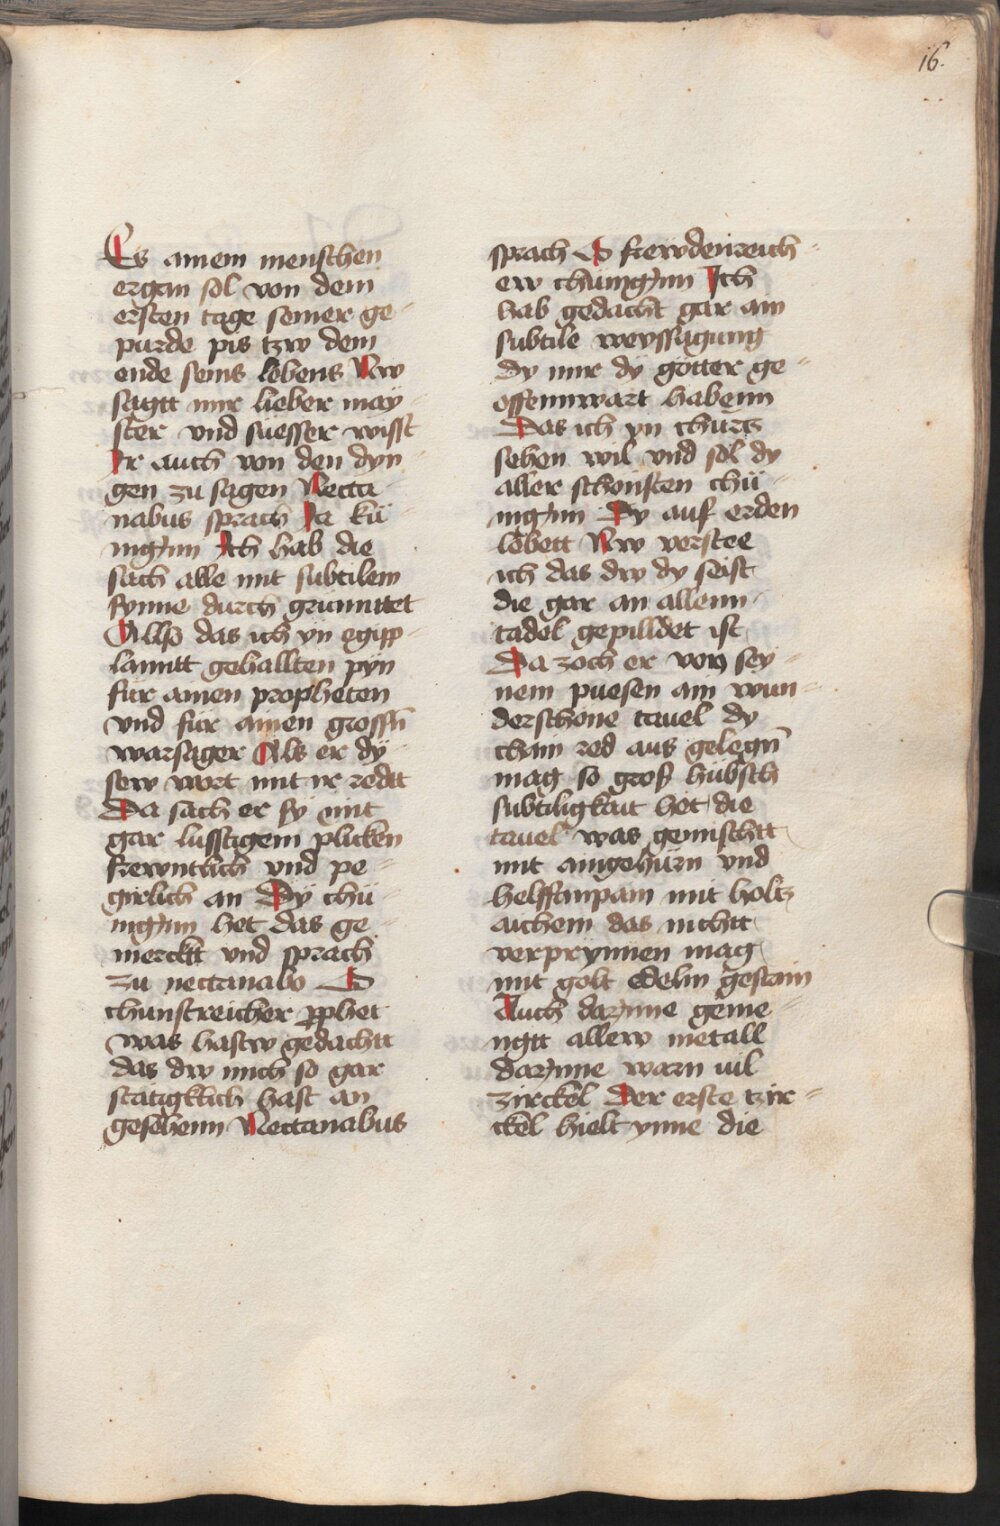 16.
Es ainem menschen
ergan sol von dem
ersten tage seiner ge-
purde pis tzw dem
ende seins lebens Nw
sagtt mir lieber may-
ster vnd suesser wisst
Ir auch von den dyn
gen zu sagen Necta-
nabus sprach Ja kü-
nigynn Ich hab die
sach alle mit subtilem
synne durch grünnttet
Allso das ich yn egipp-
lanntt gehallten pyn
für ainen propheten
vnd für ainen grossn̄
warsager Als er dÿ-
sew wort mit ir redtt
Da sach er sy mit
gar lusstigem plicken
frewntlich vnd pe-
girlich an Dÿ chü-
nigynn het das ge-
merckt vnd sprach
zu nectanabo O
chunstreicher ꝓphet
was hastw gedachtt
das dw mich so gar
stätigklich hast an
gesehenn Nectanabus
sprach O frewdenreich-
ew chünigynn Ich
hab gedacht gar ain
subtile weyssagung
dy mir dy götter ge-
offennwart habenn
Das ich yn churtz
sehen wil vnd sol dy
aller schonsten chü-
nigynn Dy auf erden
lebett Nw verstee
ich das dw dy seist
die gar an allenn
tadel gepilldet ist
Da zoch er von sey-
nem puesen ain wun-
derschone tauel dy
chain red aus gelegn̄
mag so groß hübsch
subtiligkait het die
tauel was gemischtt
mit aingehürn vnd
helffenpain mit holtz
aichem das nichtt
verprynnen mag
mit golt edelm gestain
Auch darynne geme-
ngtt allew metall
darynne warn uil
zirckel Der erste tzir-
ckel hielt ynne die